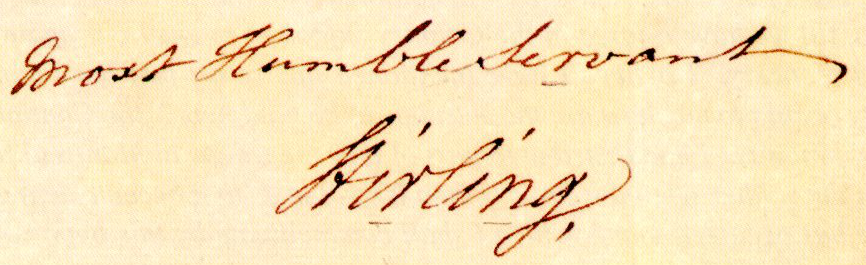 Most Humble Servant
Stirling,